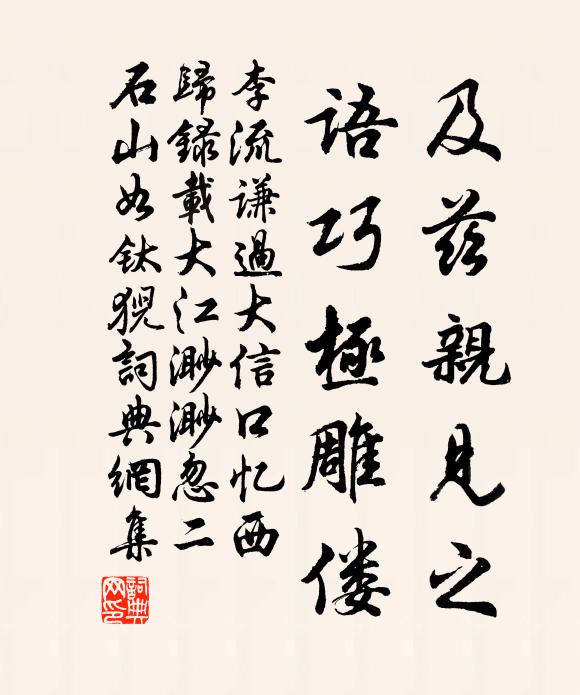 及茲親見之
語巧極雕僂
李流謙過大信口忆西
歸錄載大江渺渺忽二
石山如釱猊詞典網集
詞典网印